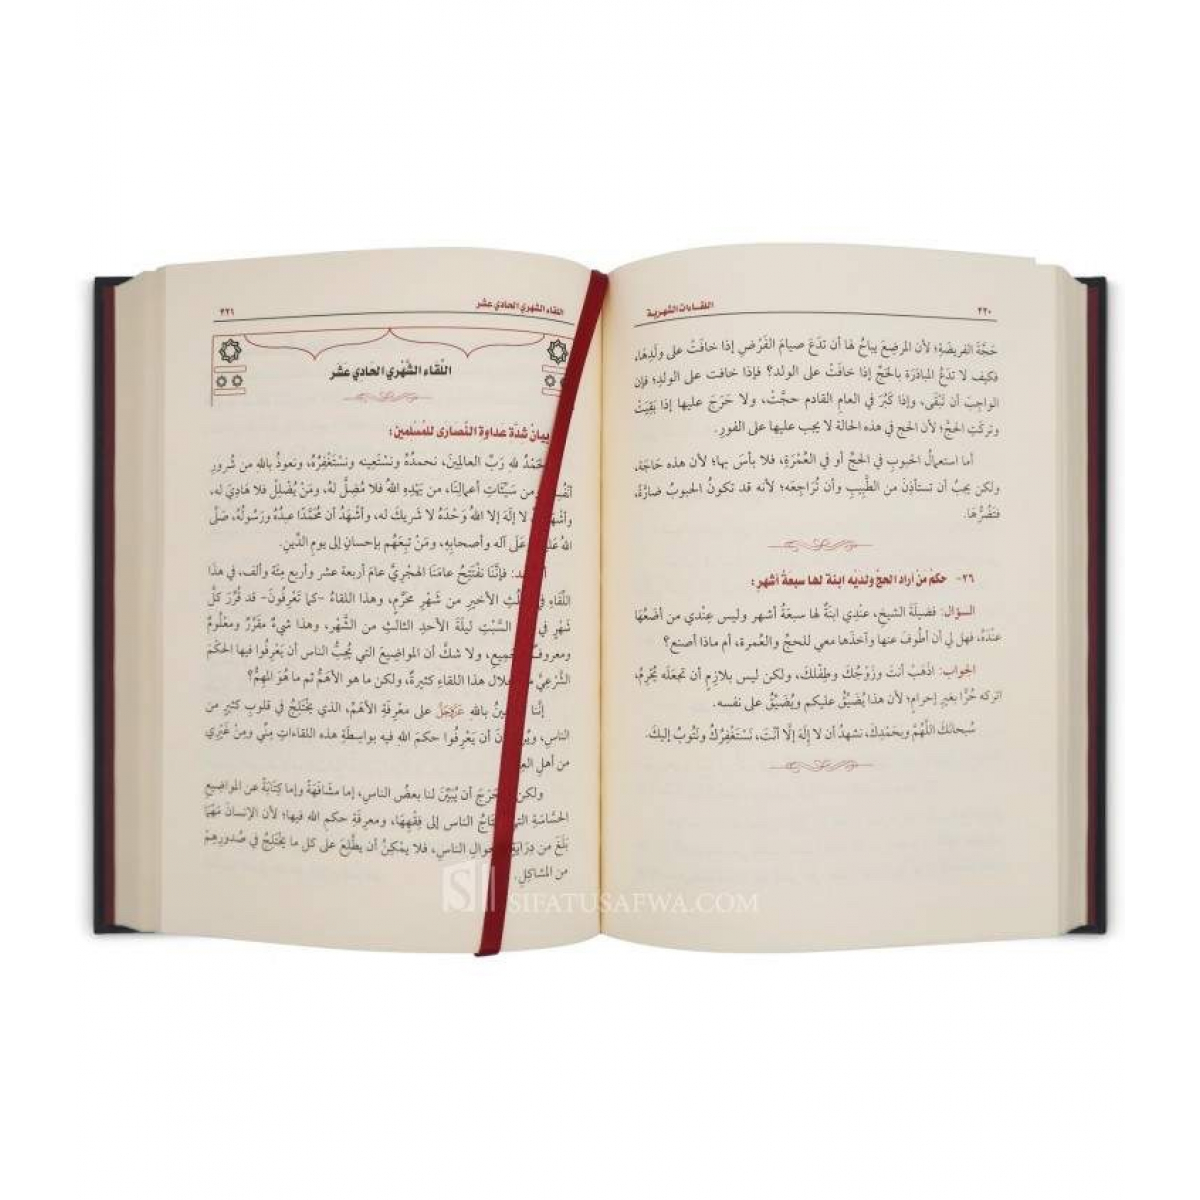 ٤٢٠
اللقاءات الشهرية
حَجَّةَ الفريضةِ؛ لأن المرضِعَ يباحُ لها أن تدَعَ صيامَ الفَرْضِ إذا خافَتْ على ولَدِها،
فكيف لا تدَعُ المبادَرَةَ بالحَجِّ إذا خافَتْ على الولد؟ فإذا خافت على الولدِ؛ فإن
الواجِبَ أن تَبْقَى، وإذا كَبُرَ في العامِ القادم حجَّتْ، ولا حَرَجَ عليها إذا بَقِيَتْ
وتركَتِ الحجَّ؛ لأن الحج في هذه الحالة لا يجب عليها على الفورِ.
أما استعمالُ الحبوبِ في الحجِّ أو في العُمْرَةِ، فلا بأسَ بها؛ لأن هذه حَاجَة،
ولكن يجبُ أن تستأذِنَ من الطَّبِيبِ وأن تُرَاجِعَه؛ لأنه قد تكونُ الحبوبُ ضارَّةً،
فتَضُرُّهَا.
٢٦- حكمُ مَنْ أراد الحجَّ ولدَيْه ابنة لها سبعةُ أشهرٍ:
السؤال: فضيلَةَ الشيخ، عنْدِي ابنَةٌ لها سبعَةُ أشهر وليس عِنْدِي من أضَعُهَا
عنْدَهُ، فهل لي أن أطُوفَ عنها وآخذَها معي للحجِّ والعُمرة، أم ماذا أصنع؟
الجواب: اذهَبْ أنتَ وزَوْجُكَ وطِفْلُك، ولكن ليس بلازِمٍ أن تجعَلَه يُحْرِمُ،
اتركه حُرًّا بغيرِ إحرامٍ؛ لأن هذا يُضَيِّقُ عليكم ويُضَيِّقُ على نفسه.
سُبحانكَ اللهُمَّ وبحَمْدِكَ، نشهدُ أن لا إلَهَ إلَّا أنْتَ، نَسْتَغْفِرُكَ ونَتُوبُ إليكَ.
اللقاء الشهري الحادي عشر
٤٢١
اللِّقاء الشَّهْري الحَادي عَشَر
بيانُ شدَّة عداوة النَّصارى للمُسْلمين:
الحَمْدُ لله رَبِّ العالمِينَ، نحمدُهُ ونستَعِينه ونستَغْفِرُهُ، ونعوذُ بالله من شُرورِ
أنْفُسِنا ومن سَيِّئاتِ أعمالِنَا، من يَهْدِهِ اللهُ فلا مُضِلَّ لَهُ، ومَنْ يُضْلِلْ فلا هَادِيَ له،
وأشْهَدُ لا إلَهَ إلا اللهُ وَحْدَهُ لا شريكَ له، وأشْهَدُ أن مُحَمَّدًا عبدُهُ ورَسُولُهُ، صَلَّى
اللهُ عَلَيْهِ وعَلَى آله وأصحابِهِ، ومَنْ تَبِعَهُم بإحسانٍ إلى يومِ الدِّينِ.
فإنَّنَا نَفْتَتِحُ عامَنَا الهجْرِيَّ عامَ أربعةَ عشر وأربع مِئَة وألف، في هذا
اللِّقَاءِ في الأخيرِ من شَهْرِ محَرَّمٍ، وهذا اللقاءُ -كما تَعْرِفُونَ- قد قُرِّرَ كلَّ
شَهْرٍ في السَّبْتِ ليلَةَ الأحدِ الثالث من الشَّهْر، وهذا شيءٌ مقرَّرٌ ومعْلُومٌ
ومعروفٌ ولا شكَّ أن المواضِيعَ التي يُحِبُّ الناس أن يَعْرِفُوا فيها الحكْمَ
الشَّرْعِيَّ هذا اللقاءِ كثيرَةٌ، ولكن ما هو الأهَمُّ ثم ما هُوَ المهِمُّ؟
إنَّنَا بالله عَزَّوَجَلَّ على معْرِفَةِ الأهَمِّ، الذي يخْتَلِجُ في قلوبِ كثيرٍ من
الناسِ، أن يَعْرِفُوا حكمَ اللهِ فيه بواسطَةِ هذه اللقاءاتِ مِنِّي ومِنْ غَيْرِي
من أهلِ
ولكن أن يُبَيِّنَ لنا بعضُ الناسِ، إما مشافَهَةً وإما كِتَابَةً عن المواضِيعِ
الحسَّاسَةِ الناس إلى فِقْهِهَا، ومعرفةِ حكم الله فيها؛ لأن الإنسانَ مَهْمَا
بَلَغَ من دِرَايَةٍ الناسِ، فلا يمْكِنُ أن يطَّلِعَ على كل ما يخْتَلِجُ في صُدورِهِمْ
من المشاكِلِ.
SIFATUSAFWA.COM